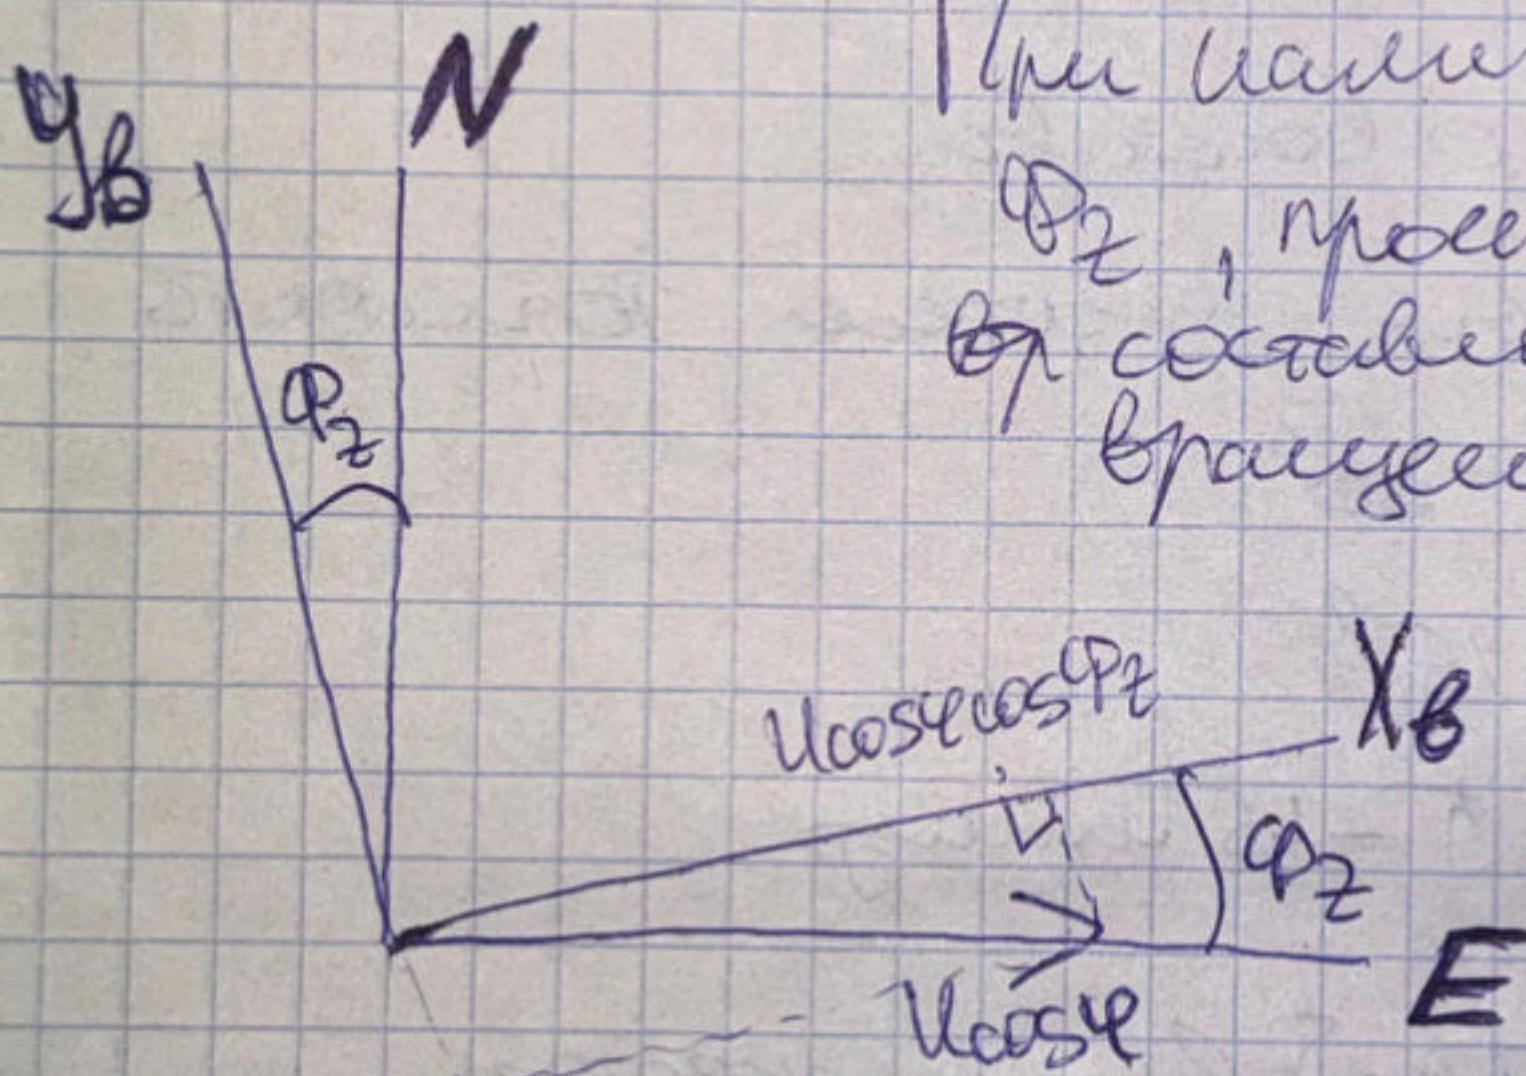 N
Yв
При нали
Φz, прое
вр составл
вращен
Φz
Xв
Ucosφcosφz
Φz
E
Ucosφ